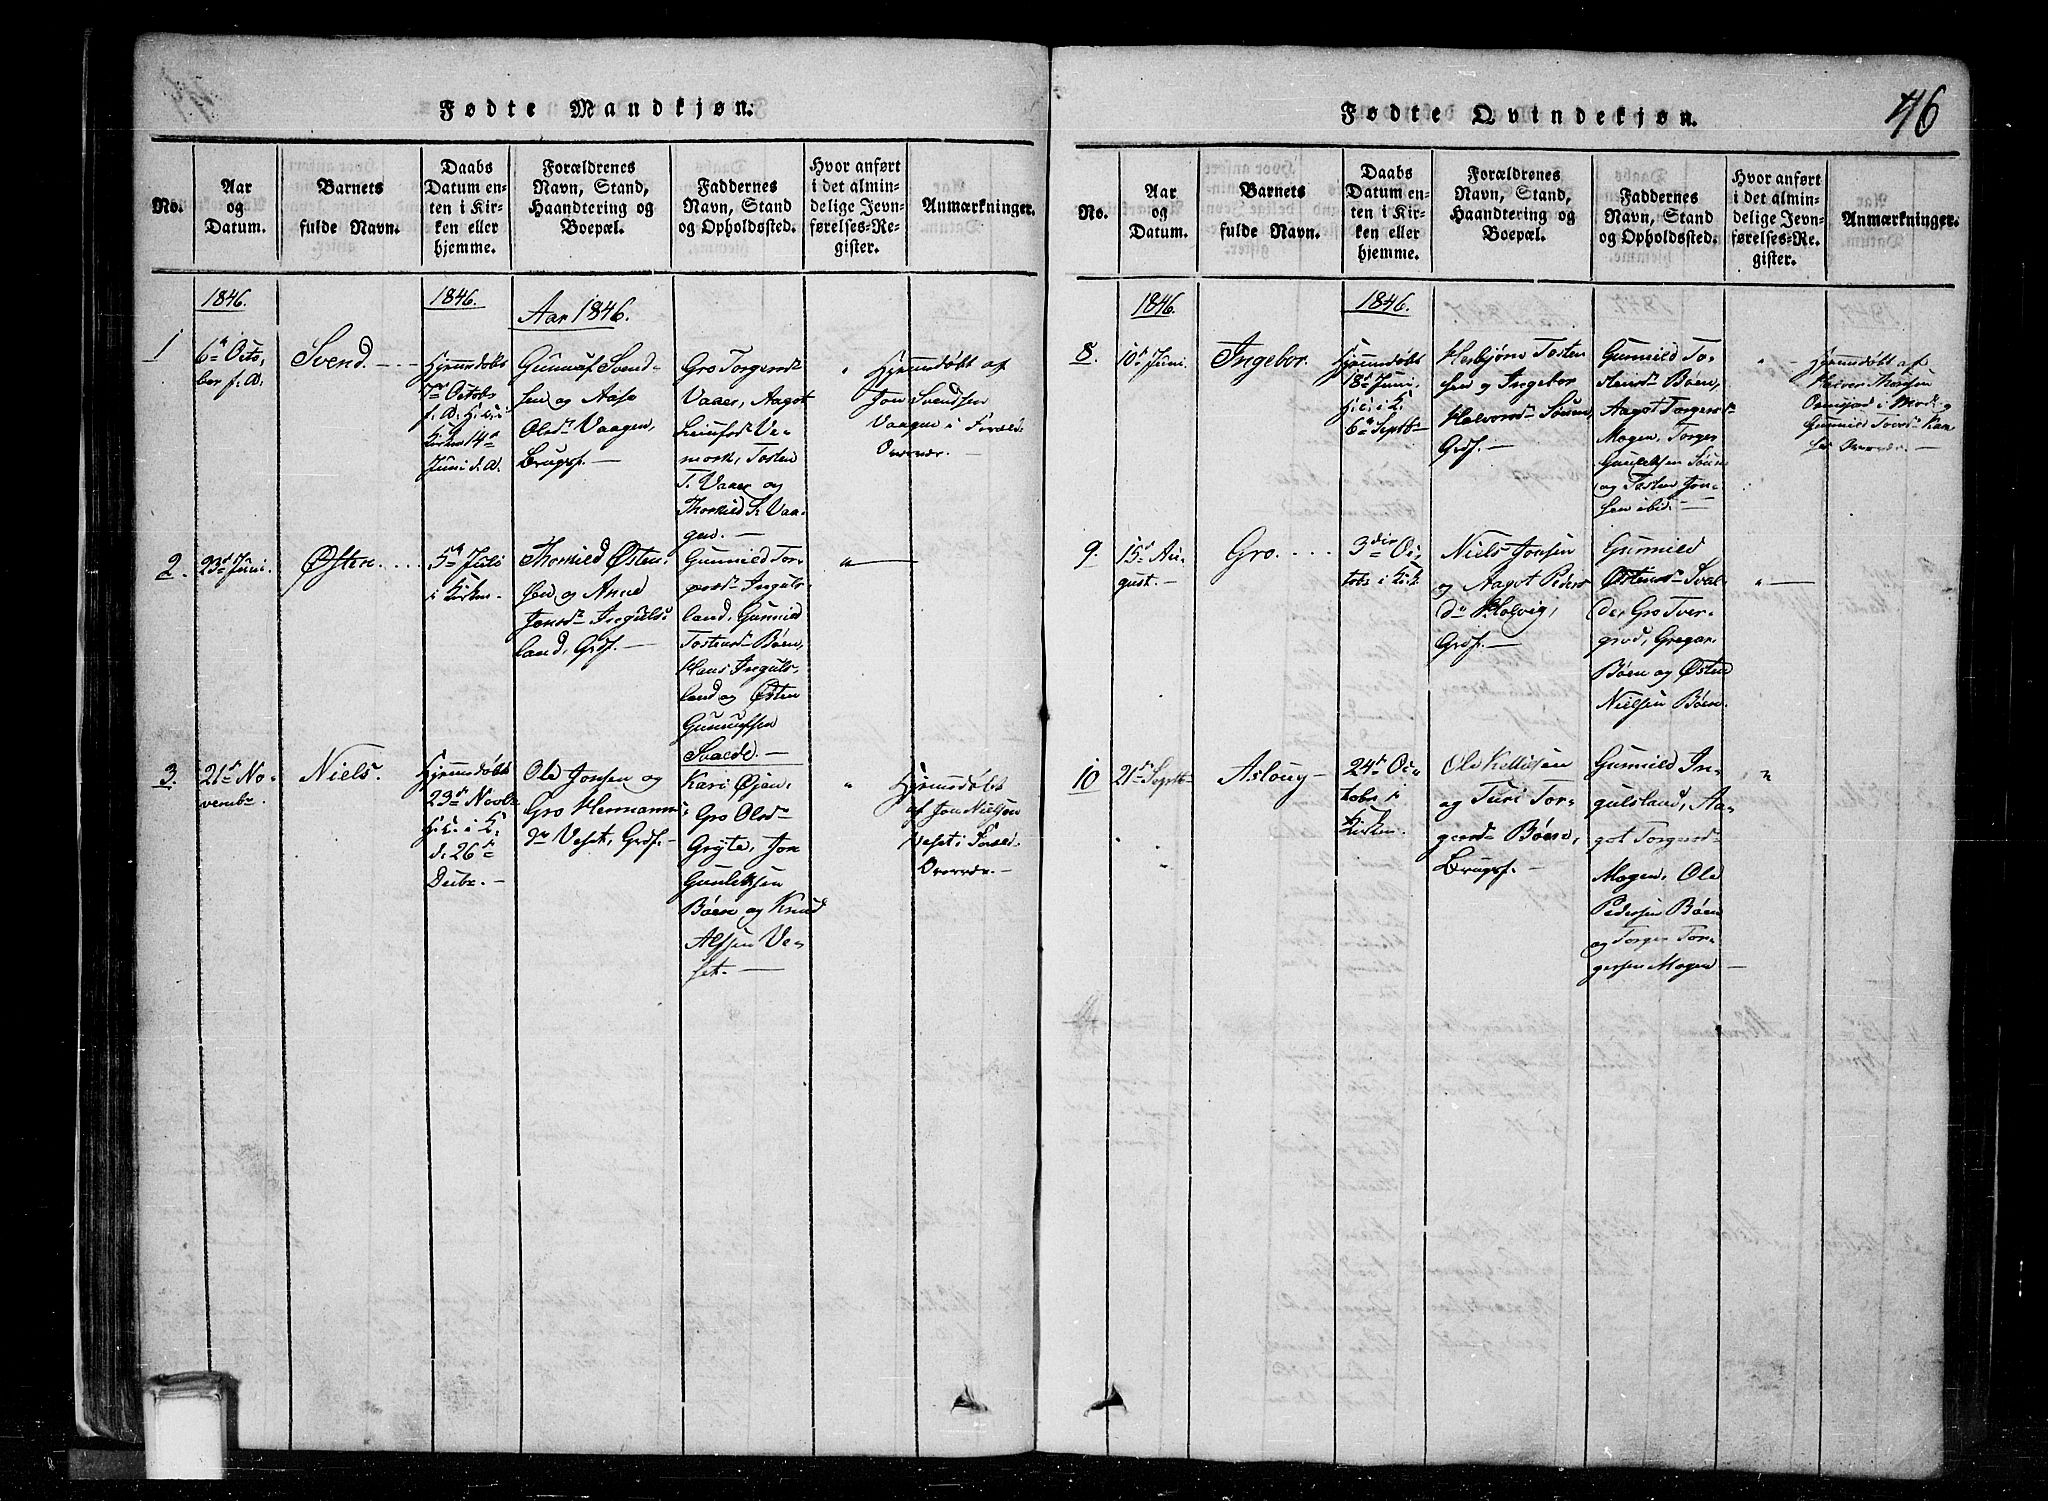 46
Fødte Mandkjøn.
No.
Aar
og
Datum.
Barnets
fulde Navn.
Daabs
Datum en-
ten i Kir-
ken eller
hjemme.
Forældrenes
Navn, Stand,
Haandtering og
Boepæl.
Faddernes
Navn, Stand
og Opholdssted.
Hvor anført
i det almin-
delige Jevn-
førelses-Re-
gister.
Anmærkninger.
1846.
1846.
Aar 1846.
1
6te Octo-
ber f. A.
Svend.
Hjemmedøbt
7de Octob.
f. A.
Kirken 14de
Juni d. A.
Gunnuf Svend-
sen og Aase
Olsdr Vaagen,
Brugsf. —
Gro Torgersdr
Vaaer, Aagot
Leiufsdr Ve-
mork, Tosten
T. Vaaer og
Thorkild S. Vaa-
gen. —
"
Hjemmedøbt af
Jon Svendsen
Vaagen i Foræld.
Overvær. —
2.
23de Juni.
Østen.
5te Juli
i Kirken.
Thorkild Østen-
sen og Anne
Jonsdr Inguls-
land, Grdf. —
Gunnild Tor-
geirsdr Inguls-
land, Gunnild
Tostensdr Bøen,
Hans Inguls-
land og Østen
Gunnufsen
Svalde. —
"
3.
21de No-
vembr.
Niels.
Hjemmedøbt
23de Novbr.
i K.
d. 26de
Decbr. —
Ole Jonsen og
Gro Hermanns-
dr Veset, Grdf. —
Kari Øjan,
Gro Olsdr
Gryte, Jon
Gunleksen
Bøen og Knud
Alfsen Ve-
set. —
"
Hjemmedøbt
af Jon Nielsen
Veset i Foræld.
Overvær. —
Fødte Qvindekjøn.
No.
Aar
og
Datum.
Barnets
fulde Navn.
Daabs
Datum en-
ten i Kir-
ken eller
hjemme.
Forældrenes
Navn, Stand,
Haandtering og
Boepæl.
Faddernes
Navn, Stand
og Opholdssted.
Hvor anført
i det almin-
delige Jevn-
førelses-Re-
gister.
Anmærkninger.
1846.
1846.
8.
10de Juni.
Ingebor.
Hjemmedøbt
18de Juni
i K.
6te Septbr
Herbjørn Tosten-
sen og Ingebor
Halvorsdr Søeum,
Grdf. —
Gunnild To-
stensdr Bøen,
Aagot Torgersdr
Mogen, Torger
Gunleksen
og Tosten Jon-
sen ibid. —
"
Hjemmedøbt af
Halvor
i Mod. og
Gunnild
Overvær. —
9.
15de Au-
gust.
Gro.
3die Oc-
tobr i Kirk.
Niels Jonsen
og Aagot Peders-
dr Holvig,
Grdf. —
Gunnild
Østensdr Sval-
de, Gro Tver-
grod, Gregar
Bøen og Østen
Nielsen Bøen.
"
10
21de Septbr
Asloug —
24de Oc-
tobr i
Kirken.
Ole Kittilsen
og Turi Tor-
geersdr Bøen,
Brugsf. —
Gunnild In-
gulsland, Aa-
got Torgersdr
Mogen, Ole
Pedersen Bøen
og Torger Tor-
gersen Mogen —
"